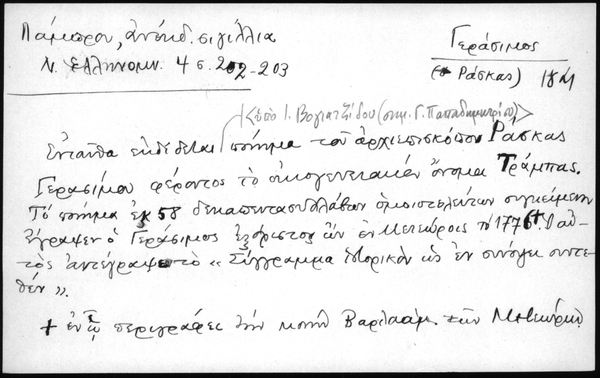 Λάμπρου, ἀνέκδ. σιγίλλια
Ν. Ἑλληνομν. 4 σ. 202-203
Γεράσιμος
(Ῥάσκας)
<ὑπὸ Ι. Βογιατζίδου (σημ. Γ. Παπαδημητρίου)>
Ἐνταῦθα ἐκδίδεται ποίημα τοῦ ἀρχιεπισκόπου Ῥάσκας
Γερασίμου φέροντος τὸ οἰκογενειακὸν ὄνομα Τράμπας.
Τὸ ποίημα ἐκ 58 δεκαπεντασυλλάβων ὁμοιοτελεύτων συγκείμενον
ἔγραψεν ὁ Γεράσιμος ἐξόριστος ὢν ἐν Μετεώροις τῷ 177 . Ὁ αὐ-
τὸς ἀντέγραψε τὸ « Σύγγραμμα ἱστορικὸν ὡς ἐν συνόψει συντε-
θέν ».
+ ἐν ᾧ περιγράφει τὴν μονὴν Βαρλαάμ τῶν Μετεώρων